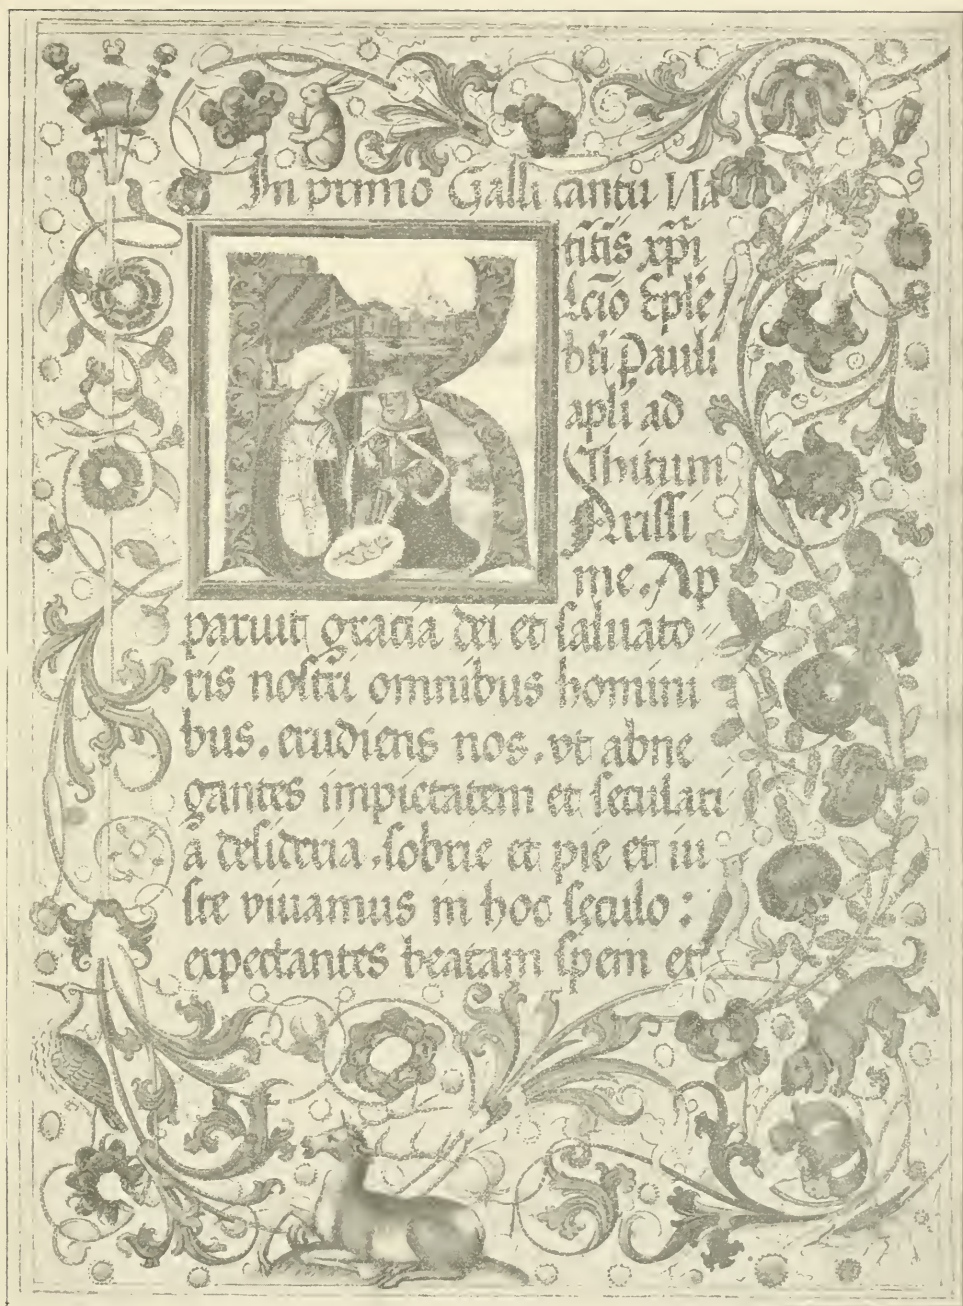 In primo Galli cantu Na
titis xpi
Lcio Eple
bti Pauli
apli ad
Thitum
Krissi
me. Ap
paruit gracia dei et saluato
ris nostri omnibus homini
bus. erudiens nos. vt abne
gantes impietatem et seculari
a desideria. sobrie et pie et iu
ste viuamus in hoc seculo:
expectantes beatam spem et